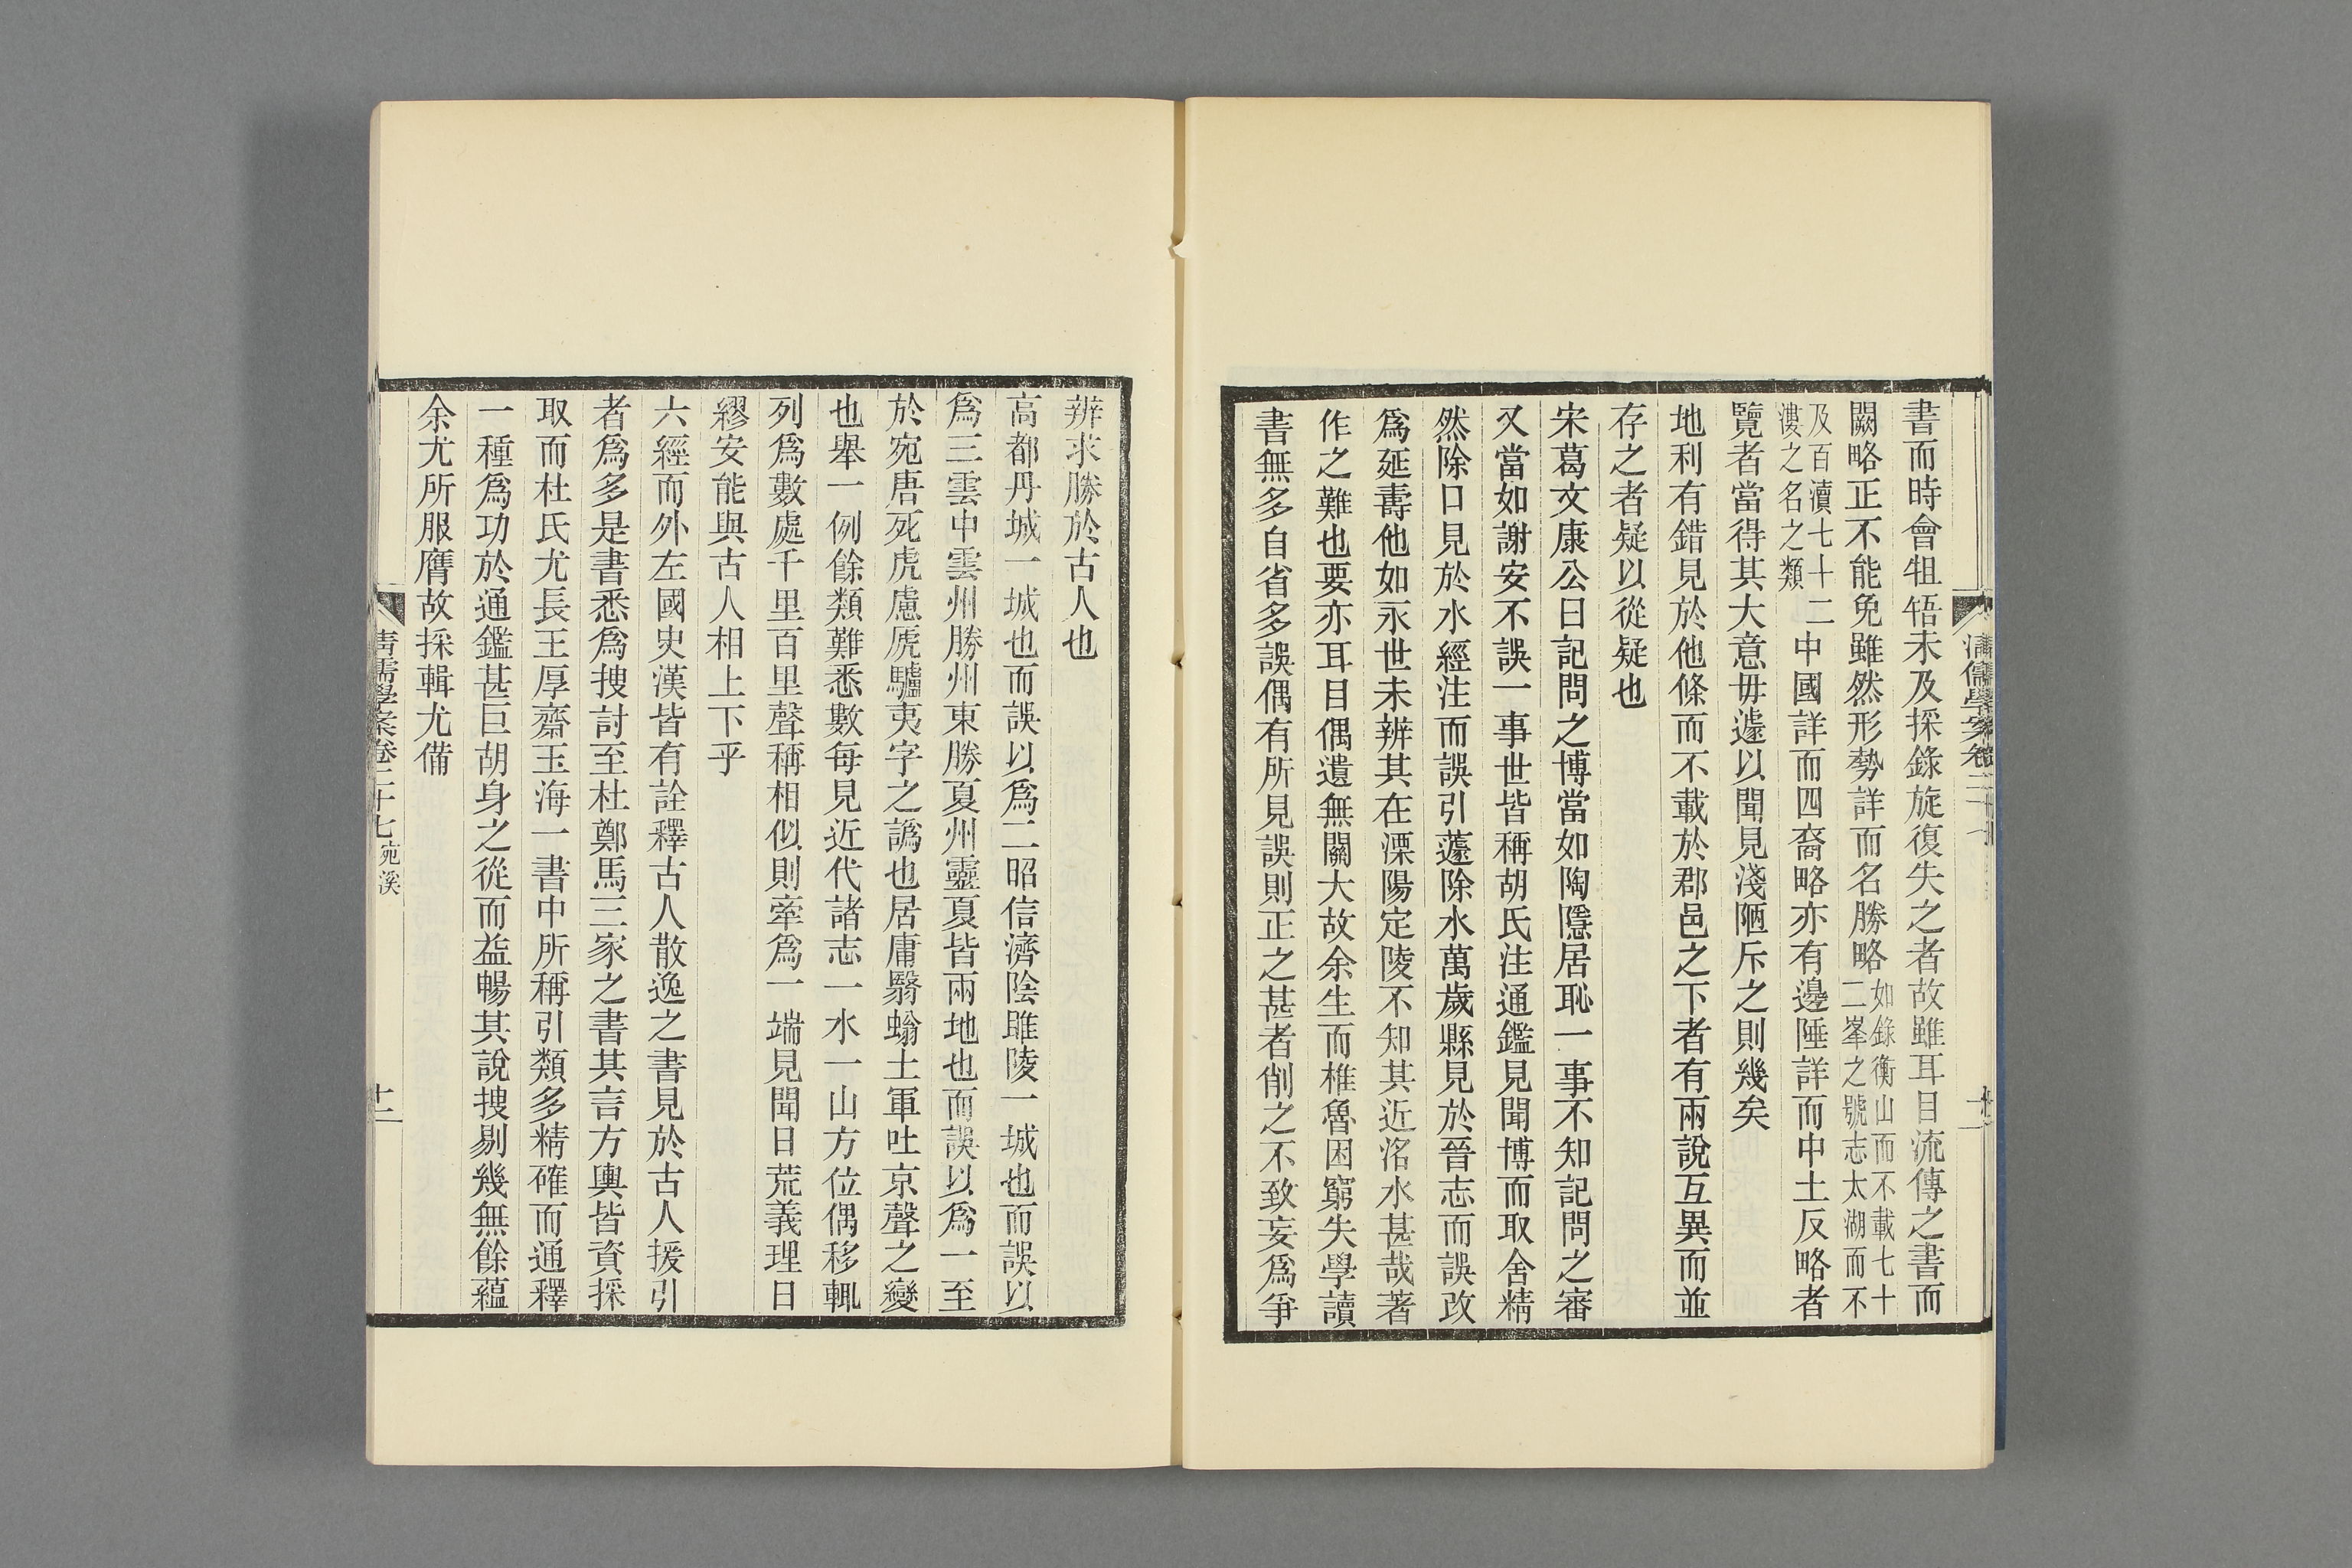 書而時會牴牾未及採錄旋復失之者故雖耳目流傳之書而
闕略正不能免雖然形勢詳而名勝略如錄衡山而不載七十二峯之號志太湖而不
及百瀆七十二漊之名之類中國詳而四裔略亦有邊陲詳而中土反略者
覽者當得其大意毋遽以聞見淺陋斥之則幾矣
地利有錯見於他條而不載於郡邑之下者有兩說互異而並
存之者疑以從疑也
宋葛文康公曰記問之博當如陶隱居恥一事不知記問之審
又當如謝安不誤一事世皆稱胡氏注通鑑見聞博而取舍精
然除口見於水經注而誤引蘧除水萬歲縣見於晉志而誤改
為延壽他如永世未辨其在溧陽定陵不知其近洺水甚哉著
作之難也要亦耳目偶遺無關大故余生而椎魯困窮失學讀
書無多自省多誤偶有所見誤則正之甚者削之不致妄為爭
清儒學案卷二十七
十一
辨求勝於古人也
高都丹城一城也而誤以為二昭信濟陰睢陵一城也而誤以
為三雲中雲州勝州東勝夏州靈夏皆兩地也而誤以為一至
於宛唐死虎慮虒驢夷字之譌也居庸翳螉土軍吐京聲之變
也舉一例餘類難悉數每見近代諸志一水一山方位偶移輒
列為數處千里百里聲稱相似則牽為一端見聞日荒義理日
繆安能與古人相上下乎
六經而外左國史漢皆有詮釋古人散逸之書見於古人援引
者為多是書悉為搜討至杜鄭馬三家之書其言方輿皆資採
取而杜氏尤長王厚齋玉海一書中所稱引類多精確而通釋
一種為功於通鑑甚巨胡身之從而益暢其說搜剔幾無餘蘊
余尤所服膺故採輯尤備
清儒學案卷二十七 宛溪
十二